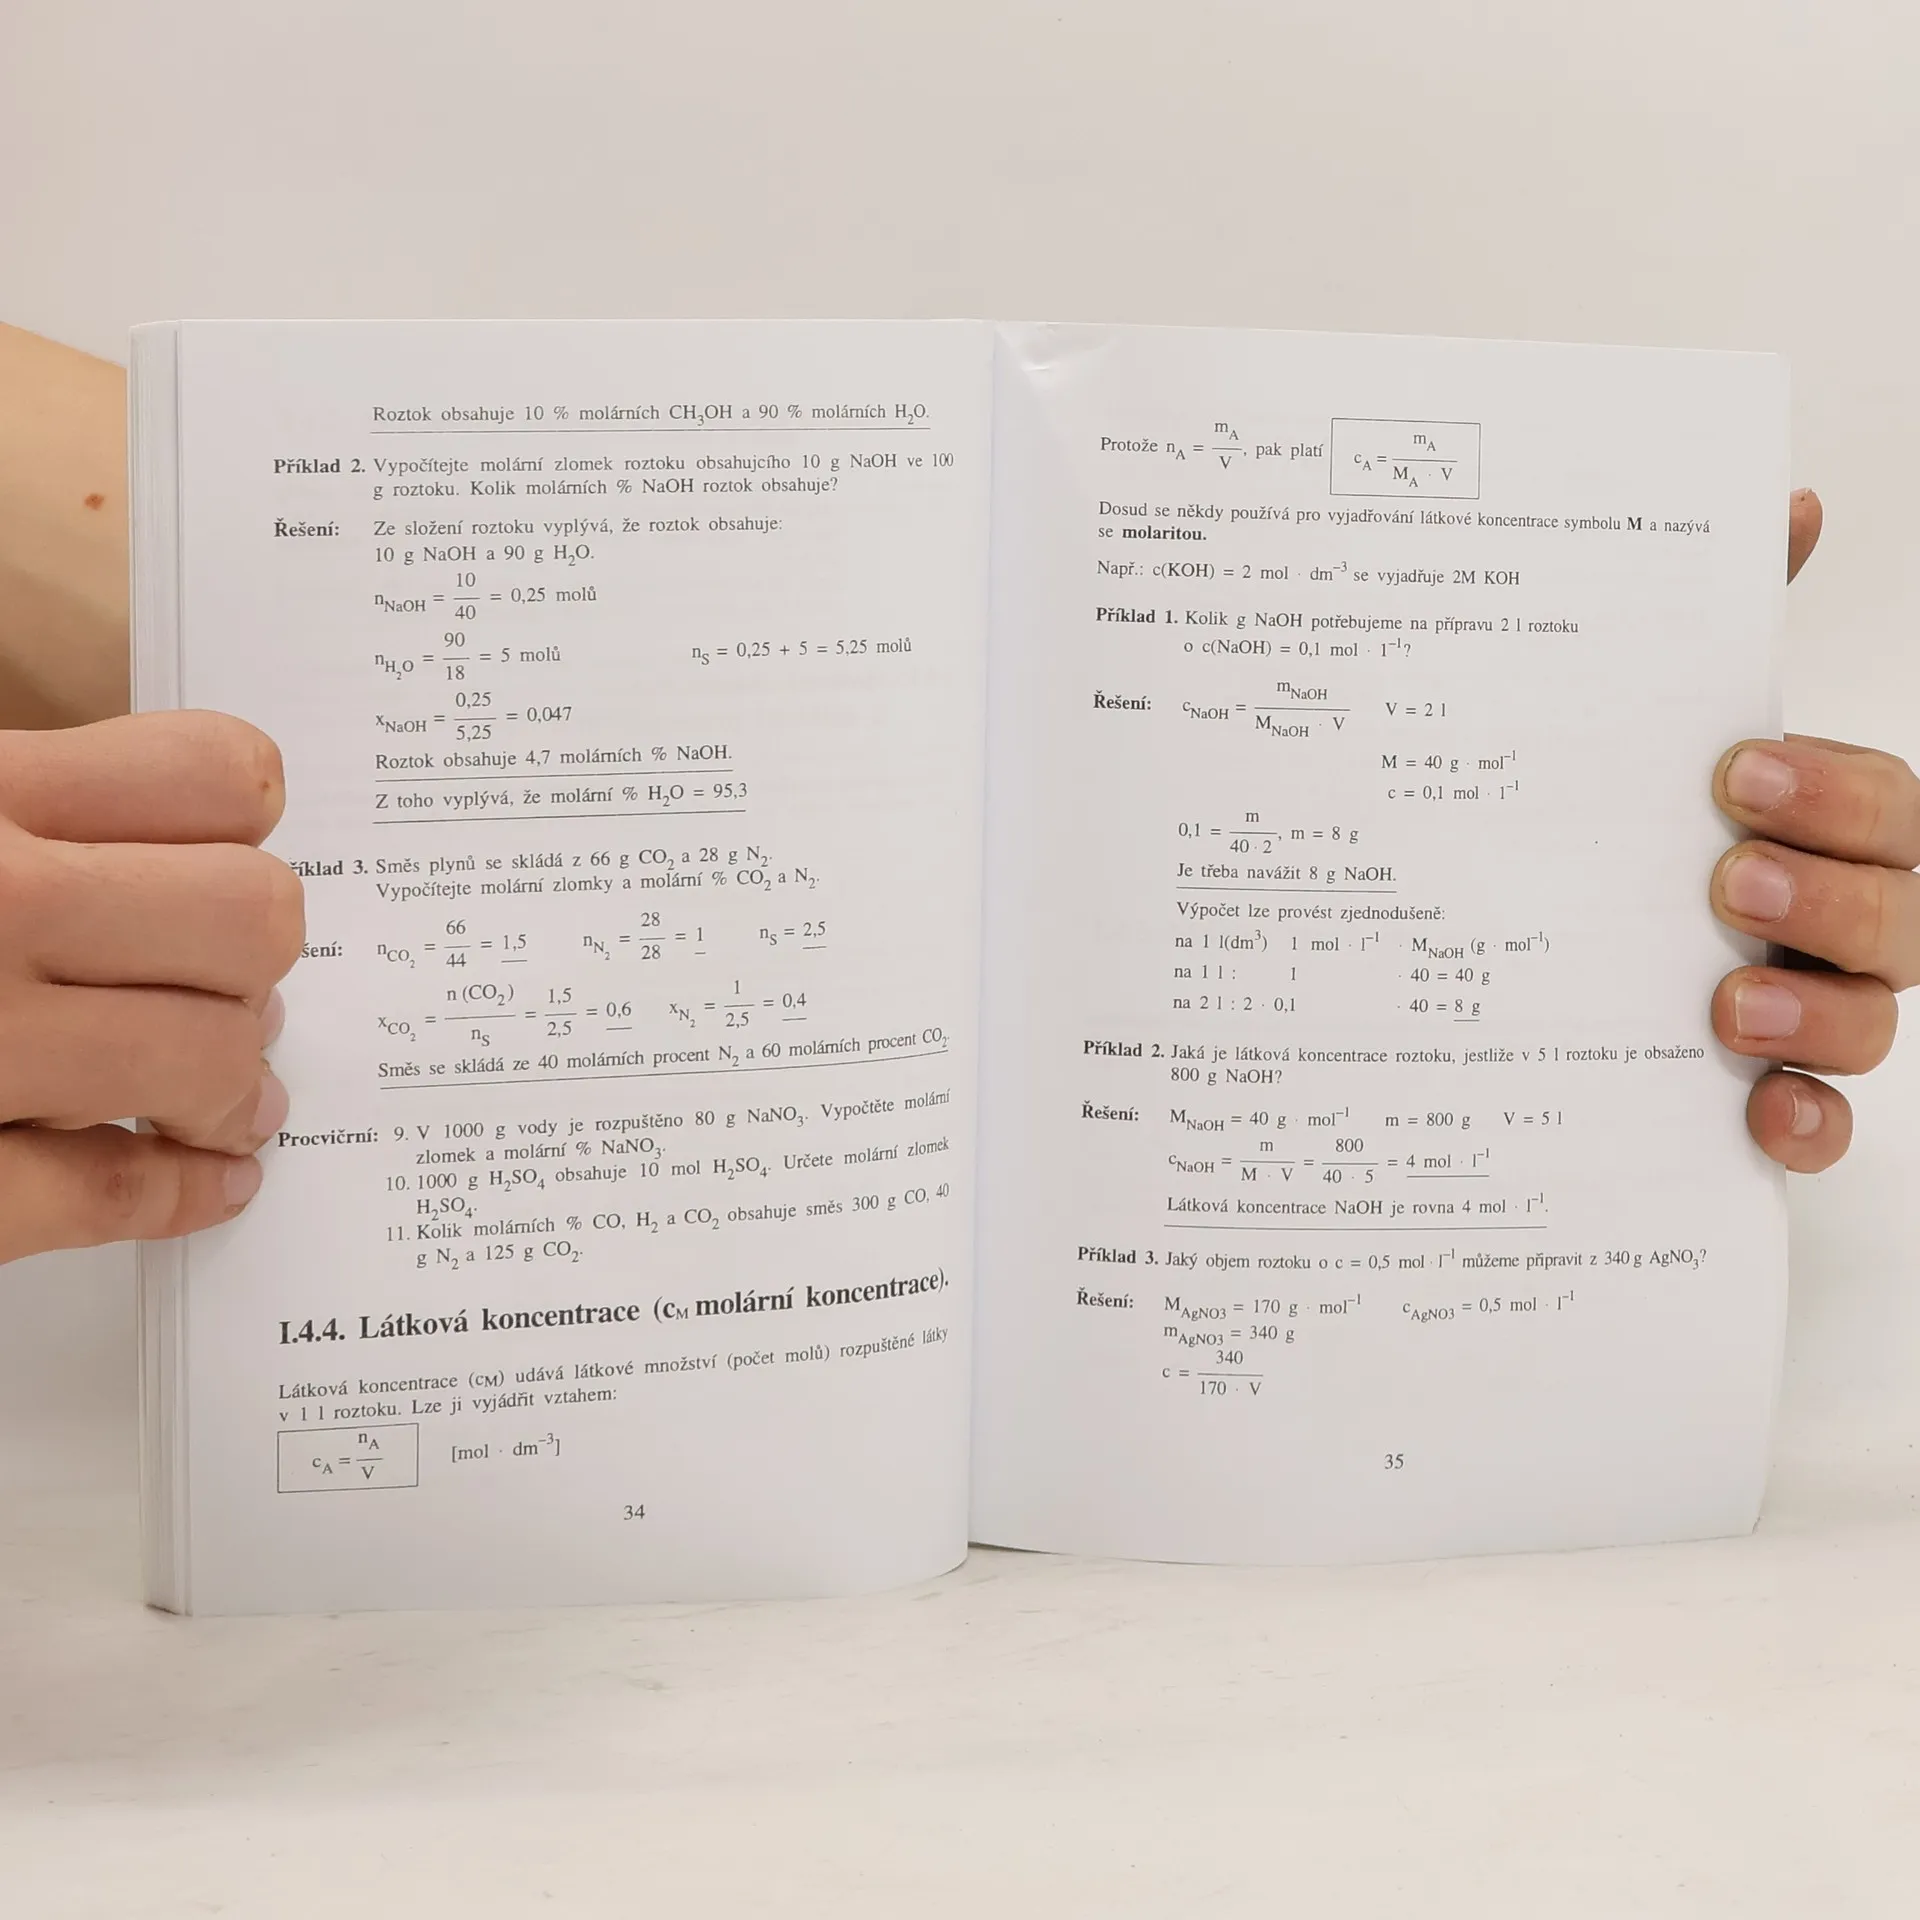 Roztok obsahuje 10 % molárních CH₃OH a 90 % molárních H₂O.
Příklad 2. Vypočítejte molární zlomek roztoku obsahujcího 10 g NaOH ve 100
g roztoku. Kolik molárních % NaOH roztok obsahuje?
Řešení: Ze složení roztoku vyplývá, že roztok obsahuje:
10 g NaOH a 90 g H₂O.
n_NaOH = 10/40 = 0,25 molů
n_H₂O = 90/18 = 5 molů n_S = 0,25 + 5 = 5,25 molů
x_NaOH = 0,25/5,25 = 0,047
Roztok obsahuje 4,7 molárních % NaOH.
Z toho vyplývá, že molární % H₂O = 95,3
říklad 3. Směs plynů se skládá z 66 g CO₂ a 28 g N₂.
Vypočítejte molární zlomky a molární % CO₂ a N₂.
šení: n_CO₂ = 66/44 = 1,5 n_N₂ = 28/28 = 1 n_S = 2,5
x_CO₂ = n (CO₂)/n_S = 1,5/2,5 = 0,6 x_N₂ = 1/2,5 = 0,4
Směs se skládá ze 40 molárních procent N₂ a 60 molárních procent CO₂.
Procvičrní: 9. V 1000 g vody je rozpuštěno 80 g NaNO₃. Vypočtěte molární
zlomek a molární % NaNO₃.
10. 1000 g H₂SO₄ obsahuje 10 mol H₂SO₄. Určete molární zlomek
H₂SO₄.
11. Kolik molárních % CO, H₂ a CO₂ obsahuje směs 300 g CO, 40
g N₂ a 125 g CO₂.
I.4.4. Látková koncentrace (c_M molární koncentrace).
Látková koncentrace (c_M) udává látkové množství (počet molů) rozpuštěné látky
v 1 l roztoku. Lze ji vyjádřit vztahem:
c_A = n_A/V [mol · dm⁻³]
34
Protože n_A = m_A/V, pak platí c_A = m_A/(M_A · V)
Dosud se někdy používá pro vyjadřování látkové koncentrace symbolu M a nazývá
se molaritou.
Např.: c(KOH) = 2 mol · dm⁻³ se vyjadřuje 2M KOH
Příklad 1. Kolik g NaOH potřebujeme na přípravu 2 l roztoku
o c(NaOH) = 0,1 mol · l⁻¹?
Řešení: c_NaOH = m_NaOH/(M_NaOH · V) V = 2 l
M = 40 g · mol⁻¹
c = 0,1 mol · l⁻¹
0,1 = m/(40 · 2), m = 8 g
Je třeba navážit 8 g NaOH.
Výpočet lze provést zjednodušeně:
na 1 l(dm³) 1 mol · l⁻¹ · M_NaOH (g · mol⁻¹)
na 1 l : 1 · 40 = 40 g
na 2 l : 2 · 0,1 · 40 = 8 g
Příklad 2. Jaká je látková koncentrace roztoku, jestliže v 5 l roztoku je obsaženo
800 g NaOH?
Řešení: M_NaOH = 40 g · mol⁻¹ m = 800 g V = 5 l
c_NaOH = m/(M · V) = 800/(40 · 5) = 4 mol · l⁻¹
Látková koncentrace NaOH je rovna 4 mol · l⁻¹.
Příklad 3. Jaký objem roztoku o c = 0,5 mol · l⁻¹ můžeme připravit z 340 g AgNO₃?
Řešení: M_AgNO3 = 170 g · mol⁻¹ c_AgNO3 = 0,5 mol · l⁻¹
m_AgNO3 = 340 g
c = 340/(170 · V)
35